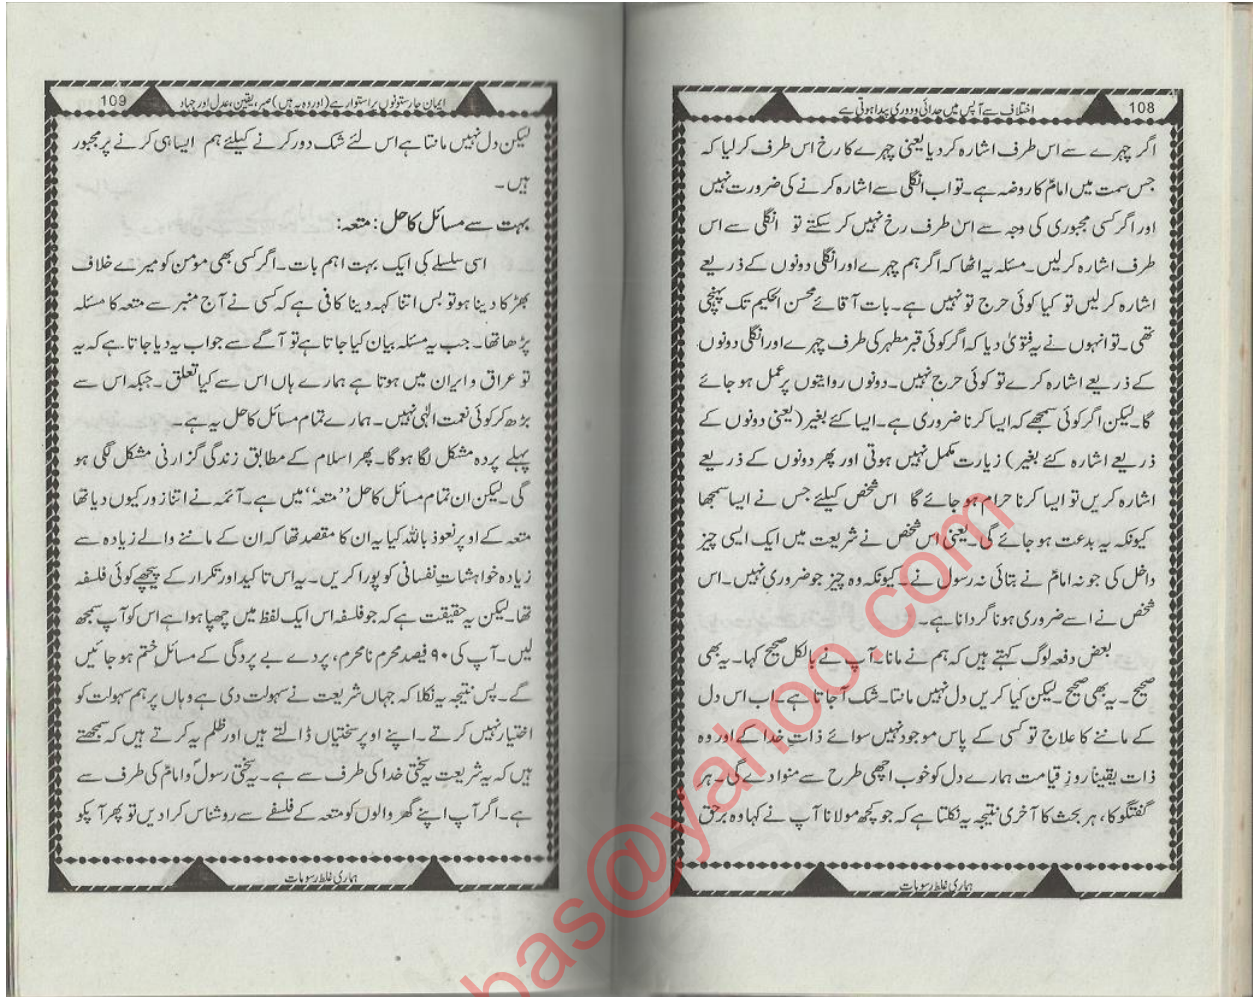 108
اختلاف سے آپس میں جدائی و دوری پیدا ہوتی ہے
اگر چہرے سے اس طرف اشارہ کر دیا یعنی چہرے کا رخ اس طرف کر لیا کہ
جس سمت میں امامؑ کا روضہ ہے۔ تو اب انگلی سے اشارہ کرنے کی ضرورت نہیں
اور اگر کسی مجبوری کی وجہ سے اس طرف رخ نہیں کر سکتے تو انگلی سے اس
طرف اشارہ کر لیں۔ مسئلہ یہ اٹھا کہ اگر ہم چہرے اور انگلی دونوں کے ذریعے
اشارہ کر لیں تو کیا کوئی حرج تو نہیں ہے۔ بات آقائے محسن الحکیم تک پہنچی
تھی۔ تو انہوں نے یہ فتویٰ دیا کہ اگر کوئی قبر مطہر کی طرف چہرے اور انگلی دونوں
کے ذریعے اشارہ کرے تو کوئی حرج نہیں۔ دونوں روایتوں پر عمل ہو جائے
گا۔ لیکن اگر کوئی سمجھے کہ ایسا کرنا ضروری ہے۔ ایسا کئے بغیر (یعنی دونوں کے
ذریعے اشارہ کئے بغیر) زیارت مکمل نہیں ہوتی اور پھر دونوں کے ذریعے
اشارہ کریں تو ایسا کرنا حرام ہو جائے گا اس شخص کیلئے جس نے ایسا سمجھا
کیونکہ یہ بدعت ہو جائے گی۔ یعنی اس شخص نے شریعت میں ایک ایسی چیز
داخل کی جو نہ امامؑ نے بتائی نہ رسول نے۔ کیونکہ وہ چیز جو ضروری نہیں۔ اس
شخص نے اسے ضروری ہونا گردانا ہے۔
بعض دفعہ لوگ کہتے ہیں کہ ہم نے مانا۔ آپ نے بالکل صحیح کہا۔ یہ بھی
صحیح۔ یہ بھی صحیح۔ لیکن کیا کریں دل نہیں مانتا۔ شک آ جاتا ہے۔ اب اس دل
کے ماننے کا علاج تو کسی کے پاس موجود نہیں سوائے ذاتِ خدا کے اور وہ
ذات یقیناً روزِ قیامت ہمارے دل کو خوب اچھی طرح سے منوا دے گی۔ ہر
گفتگو کا، ہر بحث کا آخری نتیجہ یہ نکلتا ہے کہ جو کچھ مولانا آپ نے کہا وہ برحق
ہماری غلط رسومات
109
ایمان چار ستونوں پر استوار ہے (اور وہ یہ ہیں) صبر، یقین، عدل اور جہاد
لیکن دل نہیں مانتا ہے اس لئے شک دور کرنے کیلئے ہم ایسا ہی کرنے پر مجبور
ہیں۔
بہت سے مسائل کا حل: متعہ:
اسی سلسلے کی ایک بہت اہم بات۔ اگر کسی بھی مؤمن کو میرے خلاف
بھڑکا دینا ہو تو بس اتنا کہہ دینا کافی ہے کہ کسی نے آج منبر سے متعہ کا مسئلہ
پڑھا تھا۔ جب یہ مسئلہ بیان کیا جاتا ہے تو آگے سے جواب یہ دیا جاتا ہے کہ یہ
تو عراق و ایران میں ہوتا ہے ہمارے ہاں اس سے کیا تعلق۔ جبکہ اس سے
بڑھ کر کوئی نعمت الٰہی نہیں۔ ہمارے تمام مسائل کا حل یہ ہے۔
پہلے پردہ مشکل لگا ہو گا۔ پھر اسلام کے مطابق زندگی گزارنی مشکل لگی ہو
گی۔ لیکن ان تمام مسائل کا حل ”متعہ“ میں ہے۔ آئمہ نے اتنا زور کیوں دیا تھا
متعہ کے اوپر نعوذ باللہ کیا یہ ان کا مقصد تھا کہ ان کے ماننے والے زیادہ سے
زیادہ خواہشاتِ نفسانی کو پورا کریں۔ یہ اس تاکید اور تکرار کے پیچھے کوئی فلسفہ
تھا۔ لیکن یہ حقیقت ہے کہ جو فلسفہ اس ایک لفظ میں چھپا ہوا ہے اس کو آپ سمجھ
لیں۔ آپ کی ۹۰ فیصد محرم نامحرم، پردے بے پردگی کے مسائل ختم ہو جائیں
گے۔ پس نتیجہ یہ نکلا کہ جہاں شریعت نے سہولت دی ہے وہاں پر ہم سہولت کو
اختیار نہیں کرتے۔ اپنے اوپر سختیاں ڈالتے ہیں اور ظلم یہ کرتے ہیں کہ سمجھتے
ہیں کہ یہ شریعت یہ سختی خدا کی طرف سے ہے۔ یہ سختی رسولؐ و امامؑ کی طرف سے
ہے۔ اگر آپ اپنے گھر والوں کو متعہ کے فلسفے سے روشناس کرا دیں تو پھر آپکو
ہماری غلط رسومات
bas@yahoo.com